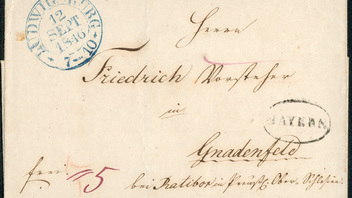 LUDWIGSBURG
12
SEPT
1846
7–10
Herrn
Friedrich Vorsteher
in
BAYERN
Gnadenfeld
bei Ratibor in Preuß. Ober-Schlesien
5